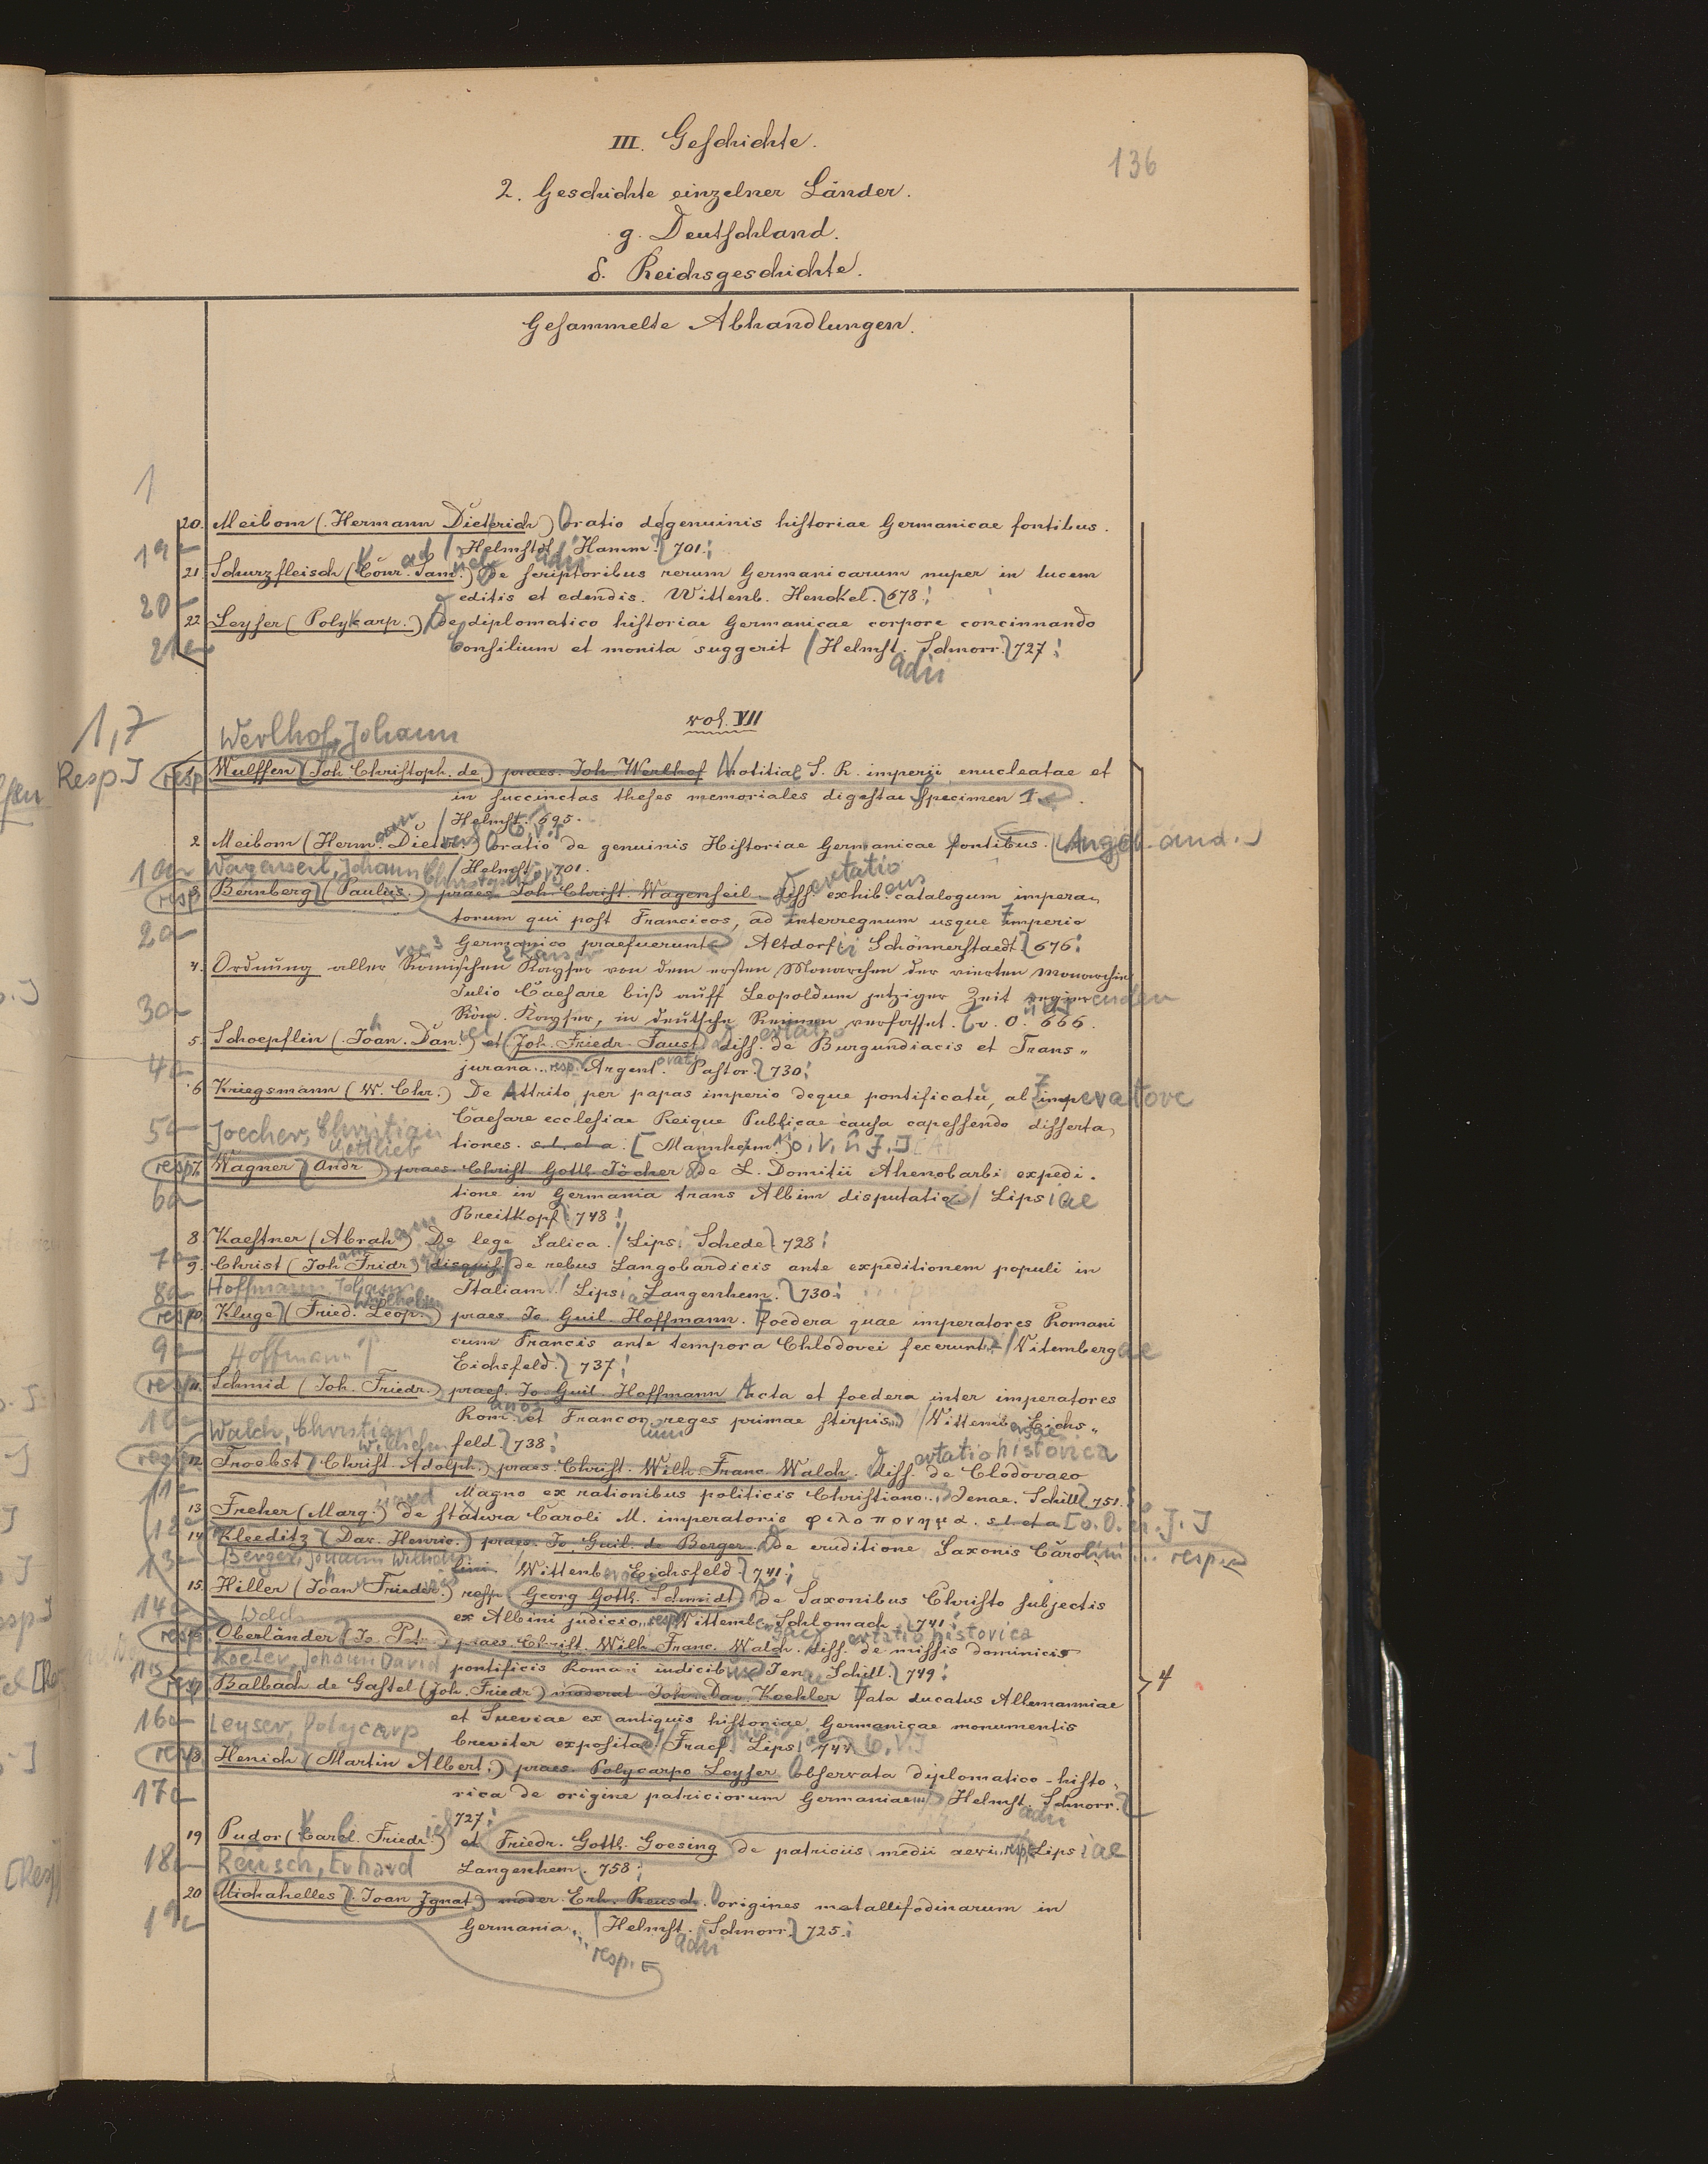 III. Geschichte.
136
2. Geschichte einzelner Länder.
g. Deutschland.
δ. Reichsgeschichte.
Gesammelte Abhandlungen.
1
20. Meibom (Hermann Dietrich) Oratio de genuinis historiae Germanicae fontibus.
Helmstdt. Hamm. 701.
21. Schurzfleisch (Conr. Sam.) De scriptoribus rerum Germanicarum nuper in lucem
editis et edendis. Wittenb. Henckel. 678.
22. Leyser (Polykarp.) De diplomatico historiae Germanicae corpore concinnando
Consilium et monita suggerit Helmst. Schnorr. 727.
adii
vol. VII
1,7
Werlhof, Johann
Resp.]
resp 1. Wulffen (Joh. Christoph. de) praes. Joh. Werlhof Notitiae S. R. imperii enucleatae et
in succinctas theses memoriales digestae Specimen I.
Helmst. 695.
2. Meibom (Herm. Dietr.) Oratio de genuinis Historiae Germanicae fontibus. [Angeb. and.]
Helmst. 701.
Wagenseil, Johann Christoph
resp 3. Bernberg (Paulus) praes. Joh. Christ. Wagenseil diss. exhib. catalogum impera-
torum qui post Francicos, ad interregnum usque imperio
Germanico praefuerunt Altdorfii Schönnerstaedt. 676.
4. Ordnung aller Römischen Kayser von dem ersten Monarchen der vierten Monarchie
Julio Caesare biß auff Leopoldum jetziger Zeit regierenden
Röm. Kayser, in deutsche Reimen verfasset. o. O. 666.
5. Schoepflin (Joan. Dan.) et Joh. Friedr. Faust diss. de Burgundiacis et Trans-
jurana ... resp. Argent. Pastor. 730.
6. Kriegsmann (W. Chr.) De Attrito per papas imperio deque pontificatu, al imperatore
Caesare ecclesiae Reique Publicae causa capessendo disserta-
tiones. s. l. et a. [Mannheim
Joecher, Christian
Gottlieb
resp 7. Wagner (Andr.) praes. Christ. Gottl. Jöcher De L. Domitii Ahenobarbi expedi-
tione in Germania trans Albim disputatio Lipsiae
Breitkopf 748.
8. Kaestner (Abrah.) De lege Salica. Lips. Schede 728.
9. Christ (Joh. Fridr.) disquis. de rebus Langobardicis ante expeditionem populi in
Italiam. Lipsiae Langenhem. 730.
Hoffmann, Johann
Wilhelm
resp 10. Kluge (Fried. Leop.) praes. Jo. Guil. Hoffmann. Foedera quae imperatores Romani
cum Francis ante tempora Chlodovei fecerunt Vitembergae
Eichsfeld. 737.
Hoffmann
resp 11. Schmid (Joh. Friedr.) praes. Jo. Guil. Hoffmann Acta et foedera inter imperatores
Rom. et Francor. reges primae stirpis Wittemb. Eichs-
feld. 738.
Walch, Christian
Wilhelm
resp 12. Froebst (Christ. Adolph.) praes. Christ. Wilh. Franc. Walch. diss. de Clodovaeo
ertatio historica
Magno ex rationibus politicis Christiano. Jenae. Schill 751.
13. Freher (Marq.) de statura Caroli M. imperatoris φιλοπονημα. s. l. et a. [o. O. u. J.]
14. Kleeditz (Dav. Henric.) praes. Jo. Guil. de Berger De eruditione Saxonis Carolini ... resp.
lini. Wittenb. Eichsfeld 741.
Berger, Johann Wilhelm
15. Hiller (Joan. Frieder.) resp. Georg Gottl. Schmidt De Saxonibus Christo subjectis
ex Albini judicio, resp. Wittemb. Schlomach 741.
Walch
resp 16. Oberländer (Jo. Pet.) praes. Christ. Wilh. Franc. Walch. diss. de missis dominicis
ertatio historica
pontificis Romani iudicibus Jen. Schill. 749.
Koeler, Johann David
resp 17. Balbach de Gastel (Joh. Friedr.) moderat. Joh. Dav. Koehler Fata ducatus Allemanniae
et Sueviae ex antiquis historiae Germanicae monumentis
breviter exposita Fracf. Lips. 744.
4
Leyser, Polycarp
resp 18. Henich (Martin Albert.) praes. Polycarpo Leyser Observata diplomatico-histo-
rica de origine patriciorum Germaniae Helmst. Schnorr.
727.
19. Pudor (Carl. Friedr.) et Friedr. Gottl. Goesing de patriciis medii aevi, resp. Lipsiae
Langenhem. 758.
Reusch, Erhard
20. Michahelles (Joan Ignat.) moder. Erh. Reusch. Origines metallifodinarum in
Germania. Helmst. Schnorr. 725.
adii
resp.